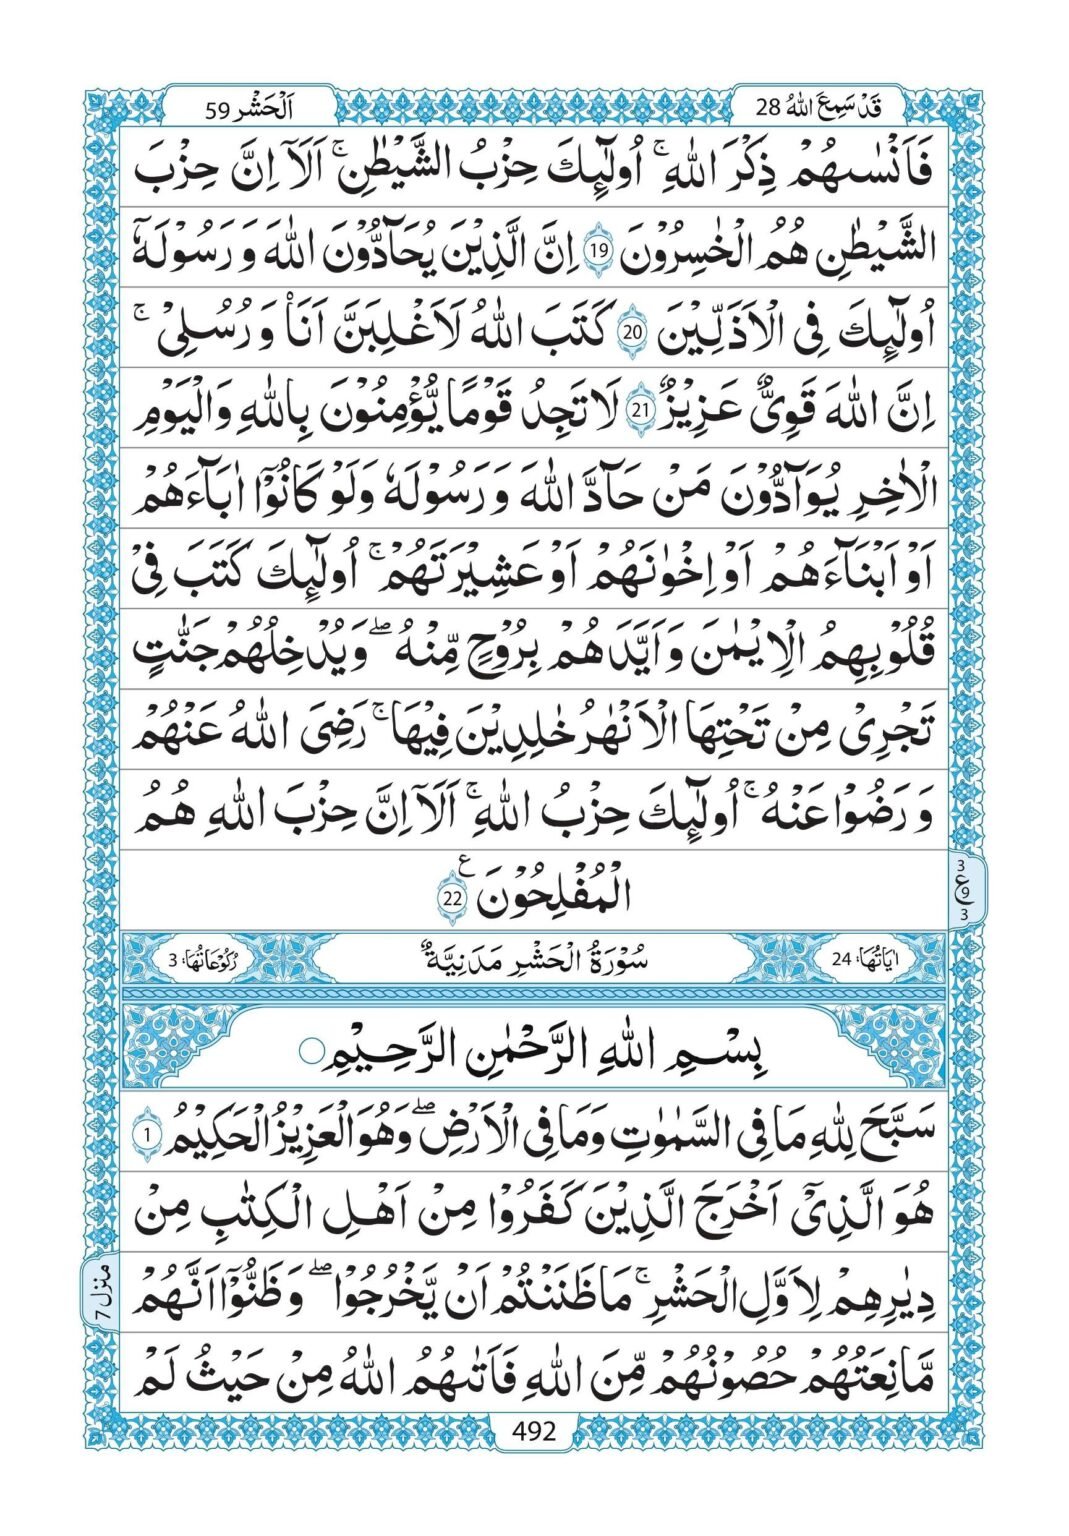 قَدْ سَمِعَ اللّٰهُ 28
اَلْحَشْر 59
فَاَنْسٰىهُمْ ذِكْرَ اللّٰهِ ۚ اُولٰٓئِكَ حِزْبُ الشَّيْطٰنِ ۚ اَلَاۤ اِنَّ حِزْبَ
الشَّيْطٰنِ هُمُ الْخٰسِرُوْنَ 19 اِنَّ الَّذِيْنَ يُحَآدُّوْنَ اللّٰهَ وَ رَسُوْلَهٗۤ
اُولٰٓئِكَ فِى الْاَذَلِّيْنَ 20 كَتَبَ اللّٰهُ لَاَغْلِبَنَّ اَنَا۠ وَ رُسُلِىْ ۚ
اِنَّ اللّٰهَ قَوِىٌّ عَزِيْزٌ 21 لَا تَجِدُ قَوْمًا يُّؤْمِنُوْنَ بِاللّٰهِ وَالْيَوْمِ
الْاٰخِرِ يُوَآدُّوْنَ مَنْ حَآدَّ اللّٰهَ وَ رَسُوْلَهٗ وَ لَوْ كَانُوْۤا اٰبَآءَهُمْ
اَوْ اَبْنَآءَهُمْ اَوْ اِخْوٰنَهُمْ اَوْ عَشِيْرَتَهُمْ ۚ اُولٰٓئِكَ كَتَبَ فِىْ
قُلُوْبِهِمُ الْاِيْمٰنَ وَ اَيَّدَهُمْ بِرُوْحٍ مِّنْهُ ۖ وَ يُدْخِلُهُمْ جَنّٰتٍ
تَجْرِىْ مِنْ تَحْتِهَا الْاَنْهٰرُ خٰلِدِيْنَ فِيْهَا ۚ رَضِىَ اللّٰهُ عَنْهُمْ
وَ رَضُوْا عَنْهُ ۚ اُولٰٓئِكَ حِزْبُ اللّٰهِ ۚ اَلَاۤ اِنَّ حِزْبَ اللّٰهِ هُمُ
الْمُفْلِحُوْنَ ع 22
3 ع 9 3
اٰيَاتُهَا: 24
سُوْرَةُ الْحَشْرِ مَدَنِيَّةٌ
رُكُوْعَاتُهَا: 3
بِسْمِ اللّٰهِ الرَّحْمٰنِ الرَّحِيْمِ
سَبَّحَ لِلّٰهِ مَا فِى السَّمٰوٰتِ وَمَا فِى الْاَرْضِ ۖ وَهُوَ الْعَزِيْزُ الْحَكِيْمُ 1
هُوَ الَّذِىْۤ اَخْرَجَ الَّذِيْنَ كَفَرُوْا مِنْ اَهْلِ الْكِتٰبِ مِنْ
دِيٰرِهِمْ لِاَوَّلِ الْحَشْرِ ۚ مَا ظَنَنْتُمْ اَنْ يَّخْرُجُوْا ۖ وَ ظَنُّوْۤا اَنَّهُمْ
مَّانِعَتُهُمْ حُصُوْنُهُمْ مِّنَ اللّٰهِ فَاَتٰىهُمُ اللّٰهُ مِنْ حَيْثُ لَمْ
منزل 7
492